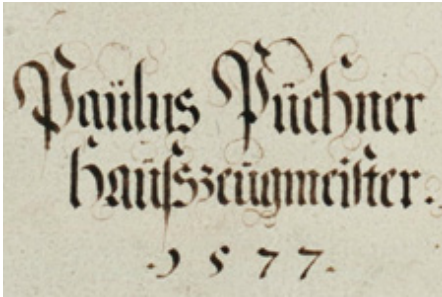 Paülus Püchner
Haüßzeügmeister.
.1577.